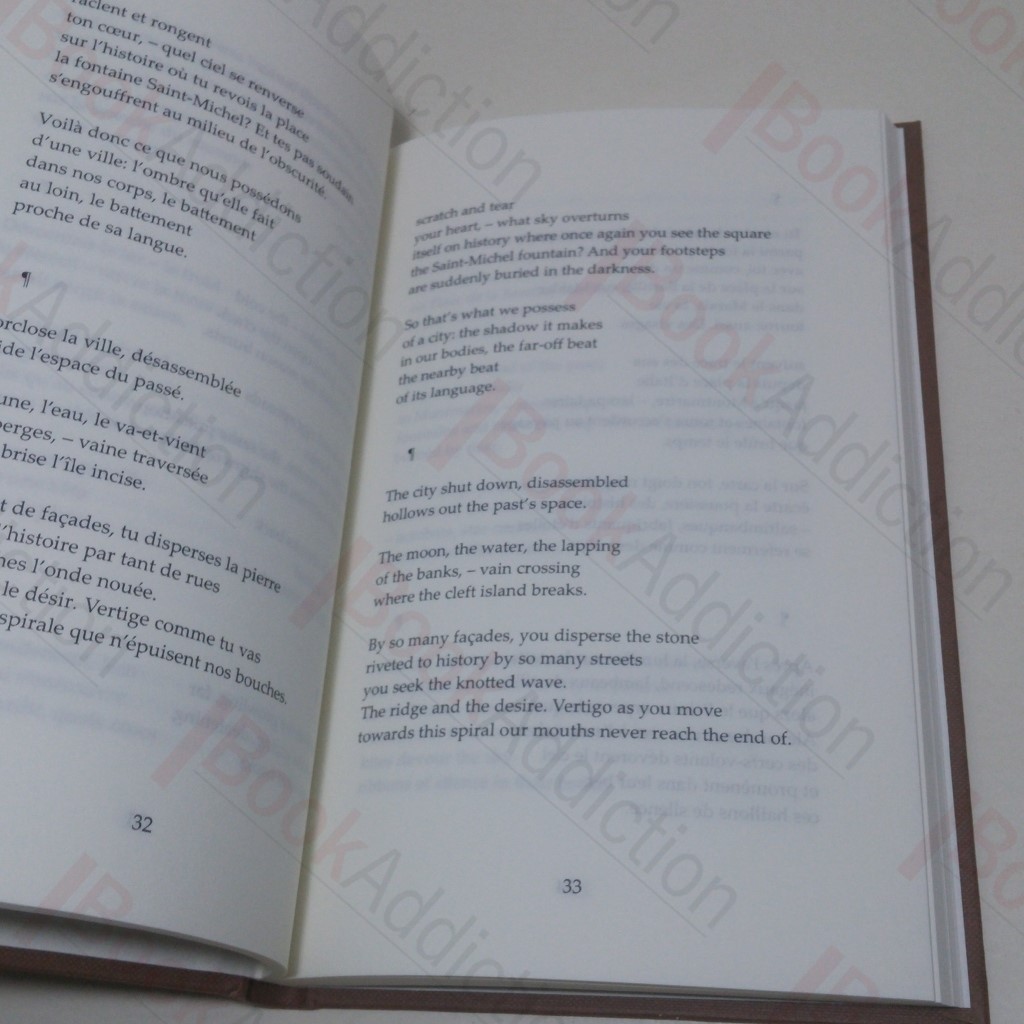 raclent et rongent
ton cœur, – quel ciel se renverse
sur l'histoire où tu revois la place
la fontaine Saint-Michel? Et tes pas soudain
s'engouffrent au milieu de l'obscurité.
Voilà donc ce que nous possédons
d'une ville: l'ombre qu'elle fait
dans nos corps, le battement
au loin, le battement
proche de sa langue.
¶
la ville, désassemblée
l'espace du passé.
l'eau, le va-et-vient
– vaine traversée
brise l'île incise.
de façades, tu disperses la pierre
l'histoire par tant de rues
l'onde nouée.
le désir. Vertige comme tu vas
spirale que n'épuisent nos bouches.
32
scratch and tear
your heart, – what sky overturns
itself on history where once again you see the square
the Saint-Michel fountain? And your footsteps
are suddenly buried in the darkness.
So that's what we possess
of a city: the shadow it makes
in our bodies, the far-off beat
the nearby beat
of its language.
¶
The city shut down, disassembled
hollows out the past's space.
The moon, the water, the lapping
of the banks, – vain crossing
where the cleft island breaks.
By so many façades, you disperse the stone
riveted to history by so many streets
you seek the knotted wave.
The ridge and the desire. Vertigo as you move
towards this spiral our mouths never reach the end of.
33
BookAddiction